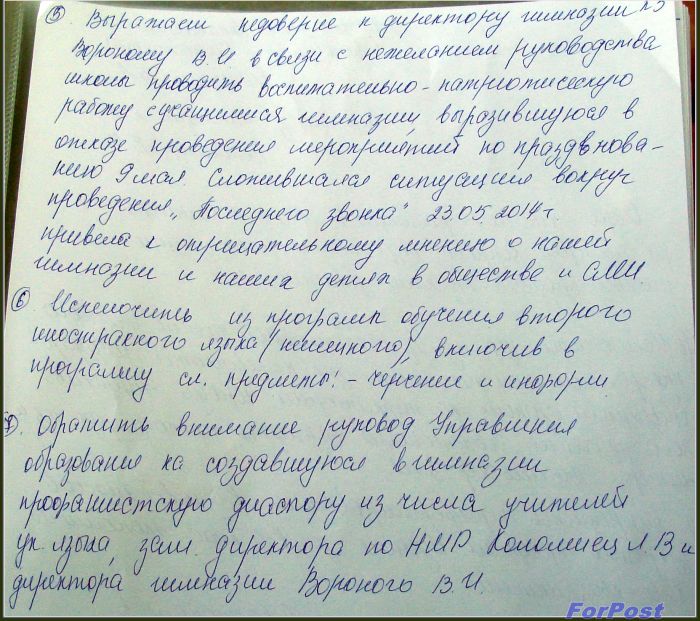 ⑤ Выражаем недоверие к директору гимназии № 5
Вороному В И в связи с нежеланием руководства
школы проводить воспитательно-патриотическую
работу с учащимися гимназии, выразившуюся в
отказе проведения мероприятий по празднова-
нию 9 мая. Сложившаяся ситуация вокруг
проведения „Последнего звонка" 23.05.2014 г.
привела к отрицательному мнению о нашей
гимназии и наших детях в обществе и СМИ.
⑥ Исключить из программ обучения второго
иностранного языка (немецкого), включив в
программу сл. предметы: - черчение и информ
⑦. Обратить внимание руковод Управления
образования на создавшуюся в гимназии
профашистскую диаспору из числа учителей
ук. языка, зам. директора по НМР Коломиец Л. В и
директора гимназии Вороного В. И.
ForPost